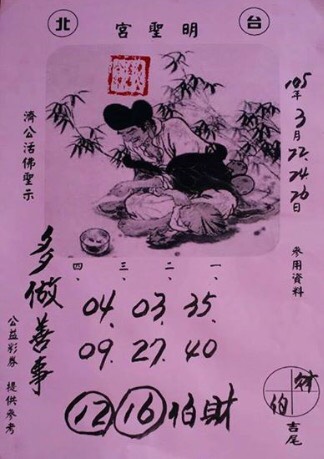 台 明聖宮 北
105年3月22.24.26日
參用資料
濟公活佛聖示
四、 三、 二、 一、
04、 03、 35、
09、 27、 40
⑫ ⑯ 伯財
多做善事
公益彩券 提供參考
財
伯
吉尾